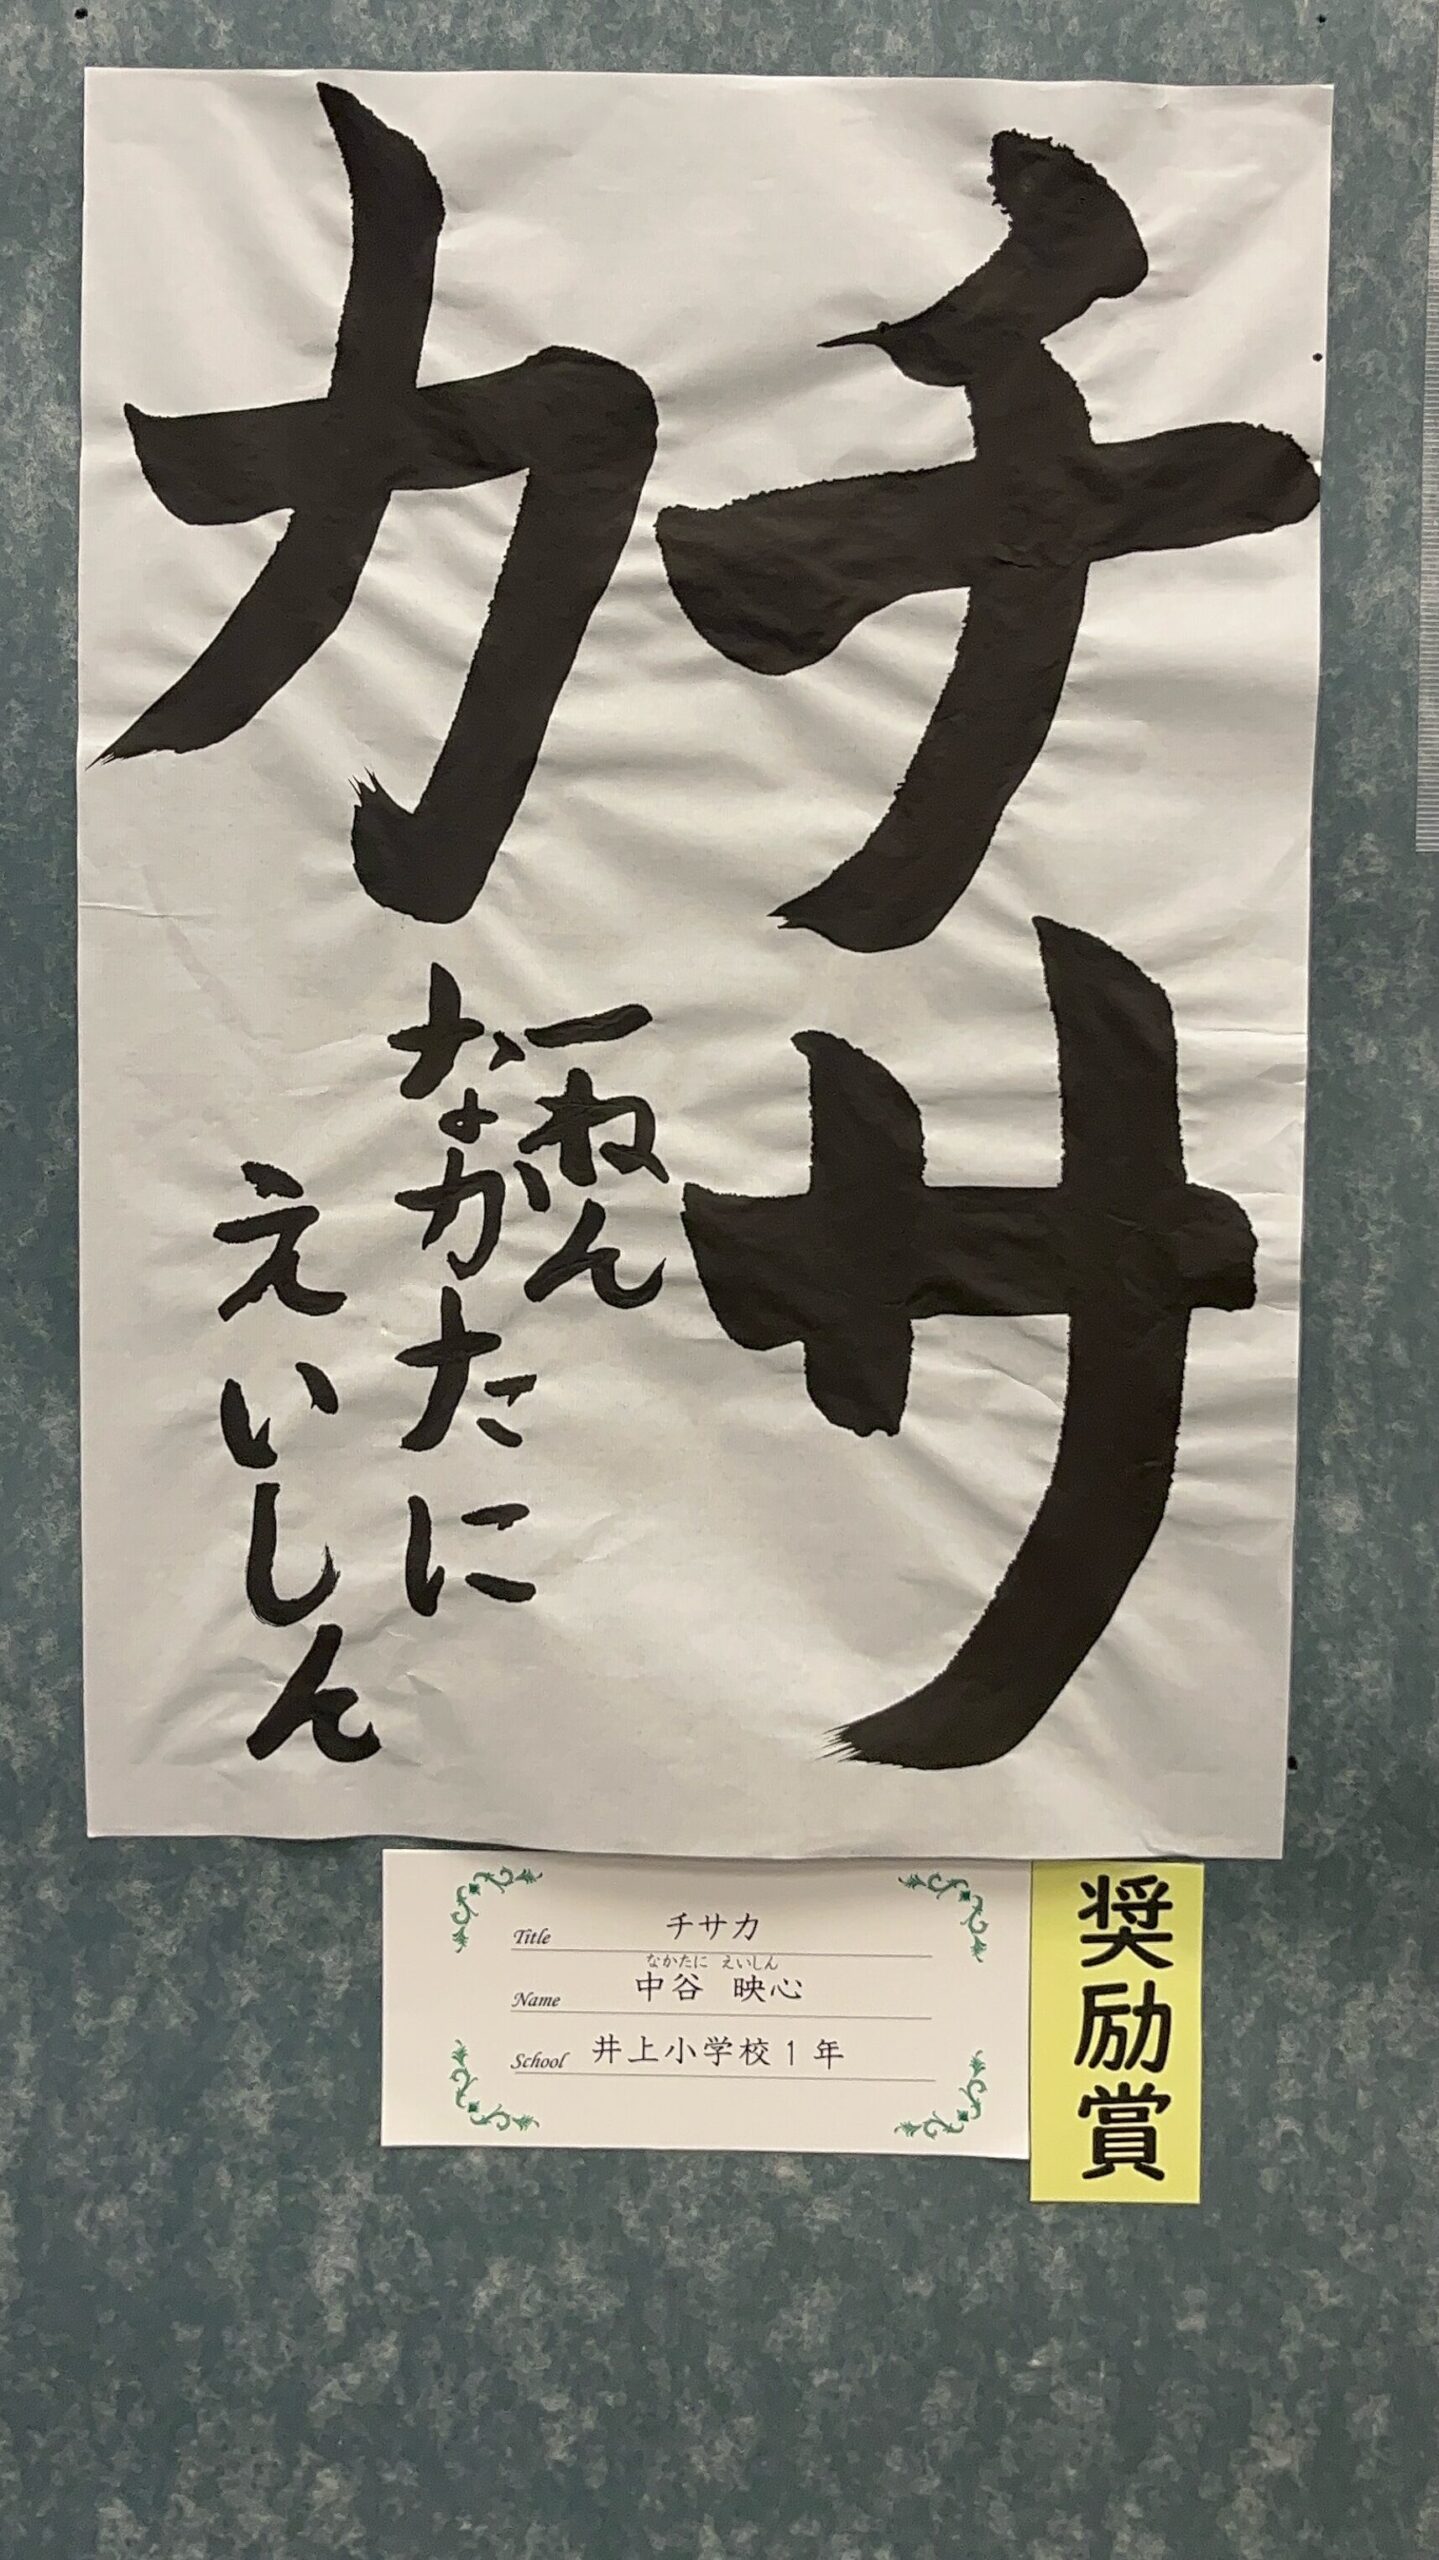 チサ
カ
一ねん
なかたに
えいしん
Title チサカ
なかたに えいしん
Name 中谷 映心
School 井上小学校1年
奨励賞